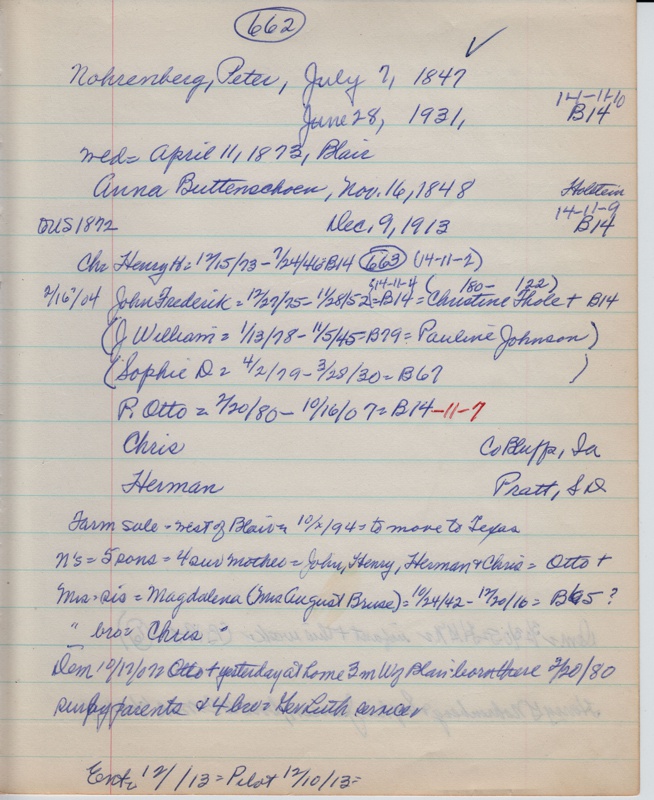 662
Nohrenberg, Peter, July 7, 1847
June 28, 1931, 14-11-10 B14
wed= April 11, 1873, Blair
Anna Buttenschoen, Nov. 16, 1848 Holstein
OUS 1872 Dec. 9, 1913 14-11-9 B14
Ch= Henry H= 12/15/73-7/24/46=B14 663 (14-11-2)
2/16/04 John Frederick = 12/27/75-11/28/52=B14=Christine Thole + B14
14-11-4 (180- 122)
(J William = 1/13/78-11/5/45=B79= Pauline Johnson)
(Sophie D = 4/2/79-3/28/30=B67 )
P. Otto = 2/20/80- 10/16/07=B14-11-7
Chris Co Bluffs, Ia
Herman Pratt, S D
Farm sale = west of Blair = 10/2/94= to move to Texas
N's = 5 sons = 4 sur mother = John, Henry, Herman & Chris = Otto +
Mrs= sis = Magdalena (Mrs August Bruse)= 10/24/42-12/30/16= B65?
" bro= Chris "
Dem 10/17/07= Otto + yesterday at home 3 m W of Blair= born there 2/20/80
sur by parents & 4 bro= Ger Luth service
Ent= 12/ /13= Pilot 12/10/13=